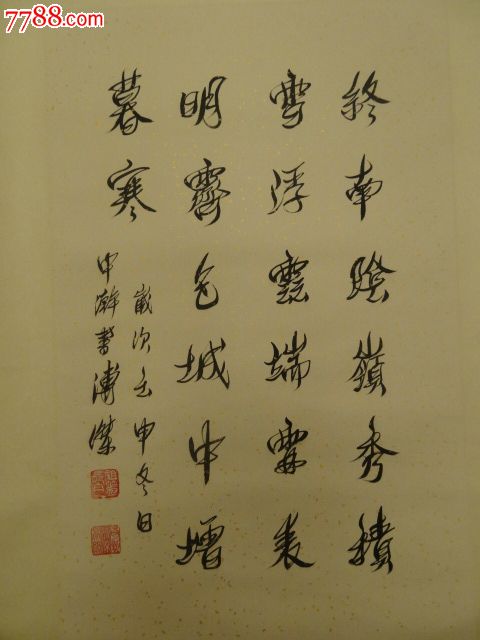 7788.com
終南陰嶺秀積
雪浮雲端霖表
明霽色城中增
暮寒
歲次壬申冬日
中澣書溥傑